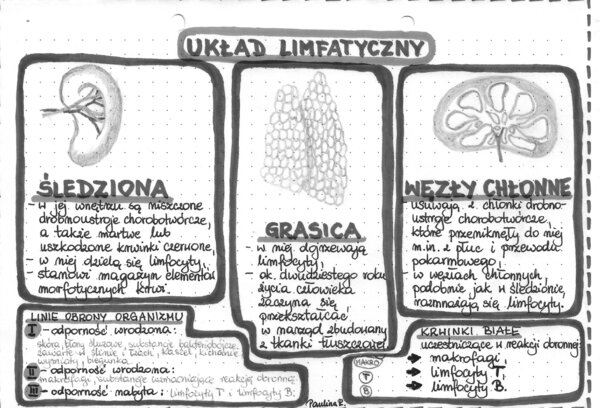 UKŁAD LIMFATYCZNY
ŚLEDZIONA
- w jej wnętrzu są niszczone
drobnoustroje chorobotwórcze,
a także martwe lub
uszkodzone krwinki czerwone,
- w niej dzielą się limfocyty,
- stanowi magazyn elementów
morfotycznych krwi.
GRASICA
- w niej dojrzewają
limfocyty,
- ok. dwudziestego roku
życia człowieka
zaczyna się
przekształcać
w narząd zbudowany
z tkanki tłuszczowej
WĘZŁY CHŁONNE
- usuwają z chłonki drobno-
ustroje chorobotwórcze,
które przeniknęły do niej
m.in. z płuc i przewodu
pokarmowego,
- w węzłach chłonnych,
podobnie jak w śledzionie,
rozmnażają się limfocyty.
LINIE OBRONY ORGANIZMU
I - odporność wrodzona:
skóra, błony śluzowe, substancje bakteriobójcze
zawarte w ślinie i łzach, kaszel, kichanie,
wymioty, biegunka
II - odporność wrodzona:
makrofagi, substancje wzmacniające reakcję obronną
III - odporność nabyta: limfocyty T i limfocyty B.
KRWINKI BIAŁE
uczestniczące w reakcji obronnej:
MAKRO → makrofagi
T → limfocyty T,
B → limfocyty B.
Paulina R.